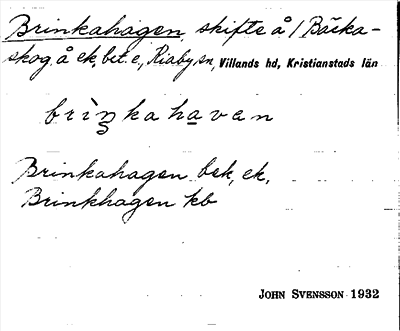 Brinkahagen, skifte å 1 Bäcka-
skog å ek. bet. e, Kiaby sn, Villands hd, Kristianstads län
brìn̲kaha̲van
Brinkahagen bek, ek,
Brinkhagen kb
JOHN SVENSSON 1932